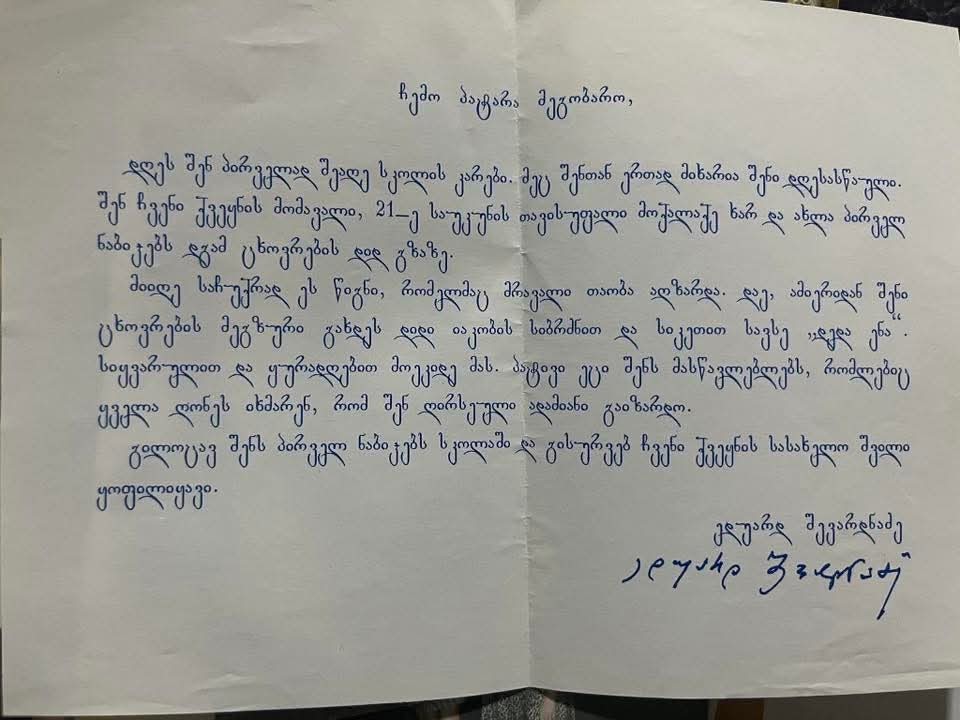 ჩემო პატარა მეგობარო,
დღეს შენ პირველად შეაღე სკოლის კარები. მეც შენთან ერთად მიხარია შენი დღესასწაული.
შენ ჩვენი ქვეყნის მომავალი, 21–ე საუკუნის თავისუფალი მოქალაქე ხარ და ახლა პირველ
ნაბიჯებს დგამ ცხოვრების დიდ გზაზე.
მიიღე საჩუქრად ეს წიგნი, რომელმაც მრავალი თაობა აღზარდა. დაე, ამიერიდან შენი
ცხოვრების მეგზური გახდეს დიდი იაკობის სიბრძნით და სიკეთით სავსე „დედა ენა“.
სიყვარულით და ყურადღებით მოეკიდე მას. პატივი ეცი შენს მასწავლებლებს, რომლებიც
ყველა ღონეს იხმარენ, რომ შენ ღირსეული ადამიანი გაიზარდო.
გილოცავ შენს პირველ ნაბიჯებს სკოლაში და გისურვებ ჩვენი ქვეყნის სასახელო შვილი
ყოფილიყავი.
ედუარდ შევარდნაძე
ედუარდ შევარდნაძე